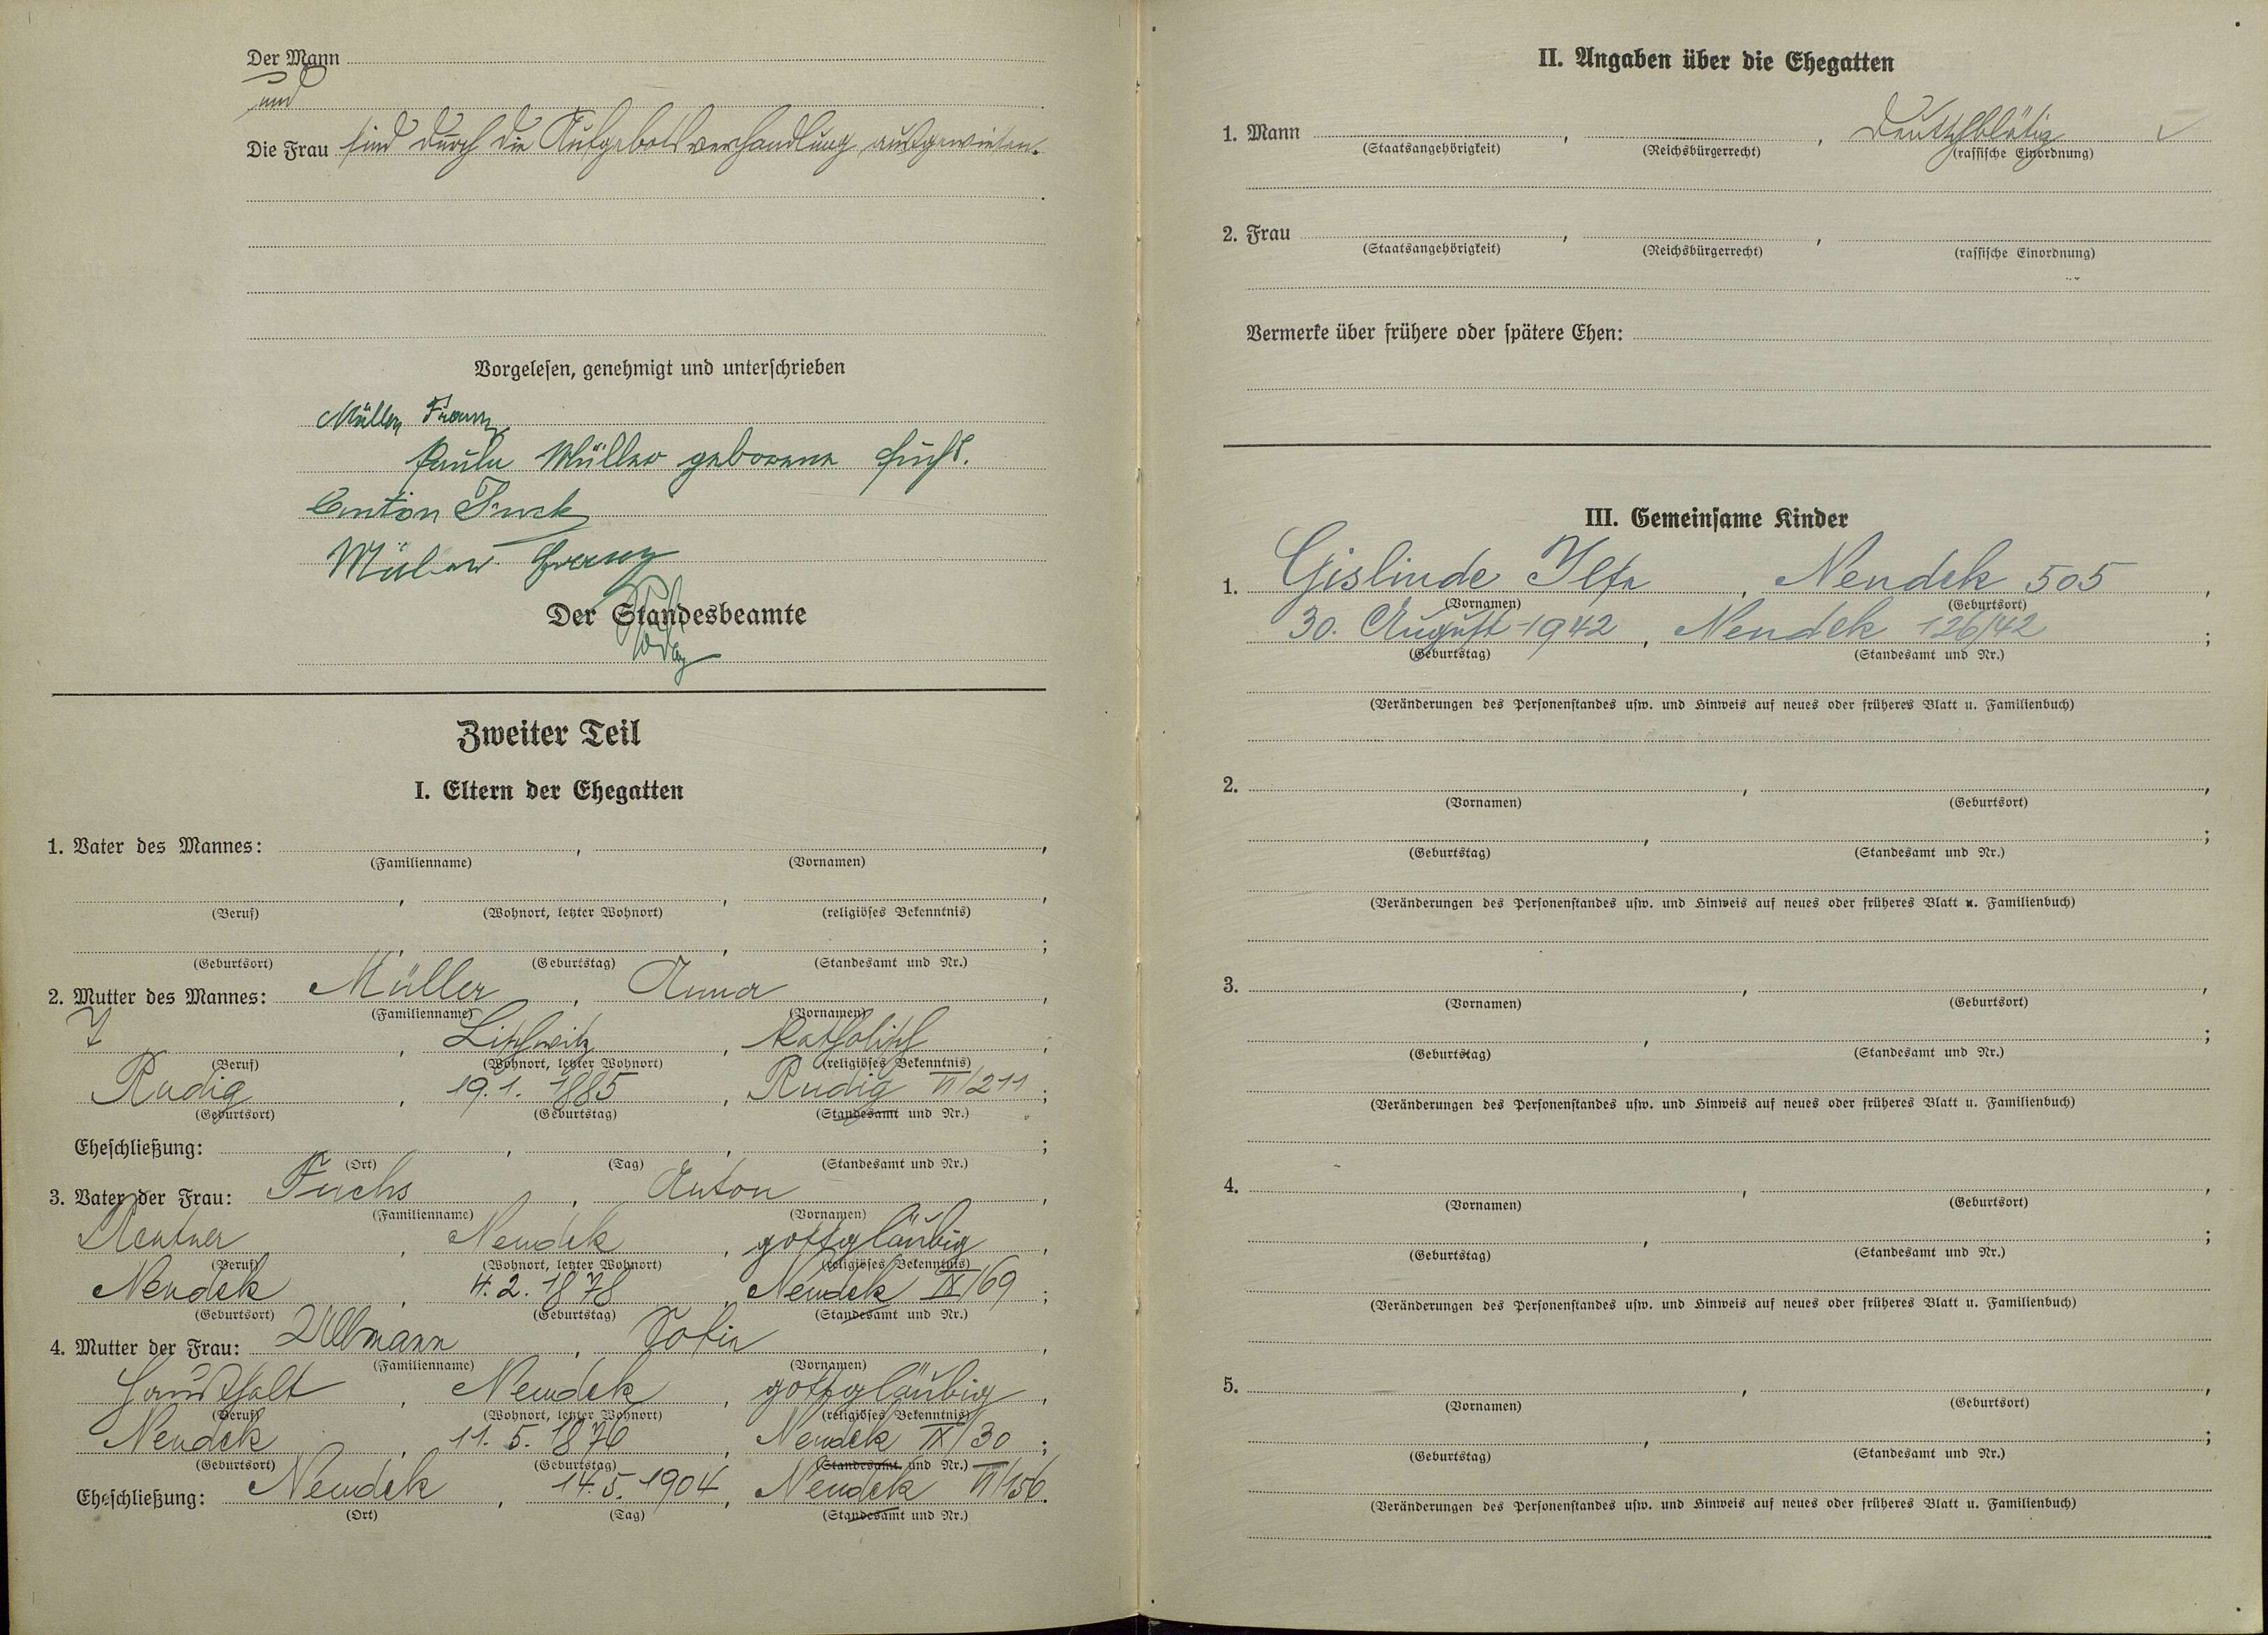 Der Mann
und
Die Frau sind durch die Aufgebotsverhandlung ausgewiesen.
Vorgelesen, genehmigt und unterschrieben
Müller Franz
Paula Müller geborene Fuchs.
Anton
Müller Franz
Der Standesbeamte
Zweiter Teil
I. Eltern der Ehegatten
1. Vater des Mannes: , ,
(Familienname) (Vornamen)
, , ,
(Beruf) (Wohnort, letzter Wohnort) (religiöses Bekenntnis)
, , ;
(Geburtsort) (Geburtstag) (Standesamt und Nr.)
2. Mutter des Mannes: Müller , Anna ,
(Familienname) (Vornamen)
, , katholisch ;
(Beruf) (Wohnort, letzter Wohnort) (religiöses Bekenntnis)
Rudig , 19.1. 1885 , Rudig VI/211 ;
(Geburtsort) (Geburtstag) (Standesamt und Nr.)
Eheschließung: , , ;
(Ort) (Tag) (Standesamt und Nr.)
3. Vater der Frau: Fuchs , Anton ,
(Familienname) (Vornamen)
Rentner , Neudek , gottgläubig ,
(Beruf) (Wohnort, letzter Wohnort) (religiöses Bekenntnis)
Neudek , 4. 2. 1878 , Neudek IX/69 ;
(Geburtsort) (Geburtstag) (Standesamt und Nr.)
4. Mutter der Frau: Ullmann , Sofie ,
(Familienname) (Vornamen)
Haushalt , Neudek , gottgläubig ,
(Beruf) (Wohnort, letzter Wohnort) (religiöses Bekenntnis)
Neudek , 11. 5. 1876 , Neudek IX/30 ;
(Geburtsort) (Geburtstag) (Standesamt und Nr.)
Eheschließung: Neudek , 14. 5. 1904 , Neudek VI/156.
(Ort) (Tag) (Standesamt und Nr.)
II. Angaben über die Ehegatten
1. Mann , , Deutschblütig
(Staatsangehörigkeit) (Reichsbürgerrecht) (rassische Einordnung)
2. Frau , ,
(Staatsangehörigkeit) (Reichsbürgerrecht) (rassische Einordnung)
Vermerke über frühere oder spätere Ehen:
III. Gemeinsame Kinder
1. Gislinde Ilse , Neudek 505 ,
(Vornamen) (Geburtsort)
30. August 1942 , Neudek 126/42 ;
(Geburtstag) (Standesamt und Nr.)
(Veränderungen des Personenstandes usw. und Hinweis auf neues oder früheres Blatt u. Familienbuch)
2. , ,
(Vornamen) (Geburtsort)
, ;
(Geburtstag) (Standesamt und Nr.)
(Veränderungen des Personenstandes usw. und Hinweis auf neues oder früheres Blatt u. Familienbuch)
3. , ,
(Vornamen) (Geburtsort)
, ;
(Geburtstag) (Standesamt und Nr.)
(Veränderungen des Personenstandes usw. und Hinweis auf neues oder früheres Blatt u. Familienbuch)
4. , ,
(Vornamen) (Geburtsort)
, ;
(Geburtstag) (Standesamt und Nr.)
(Veränderungen des Personenstandes usw. und Hinweis auf neues oder früheres Blatt u. Familienbuch)
5. , ,
(Vornamen) (Geburtsort)
, ;
(Geburtstag) (Standesamt und Nr.)
(Veränderungen des Personenstandes usw. und Hinweis auf neues oder früheres Blatt u. Familienbuch)